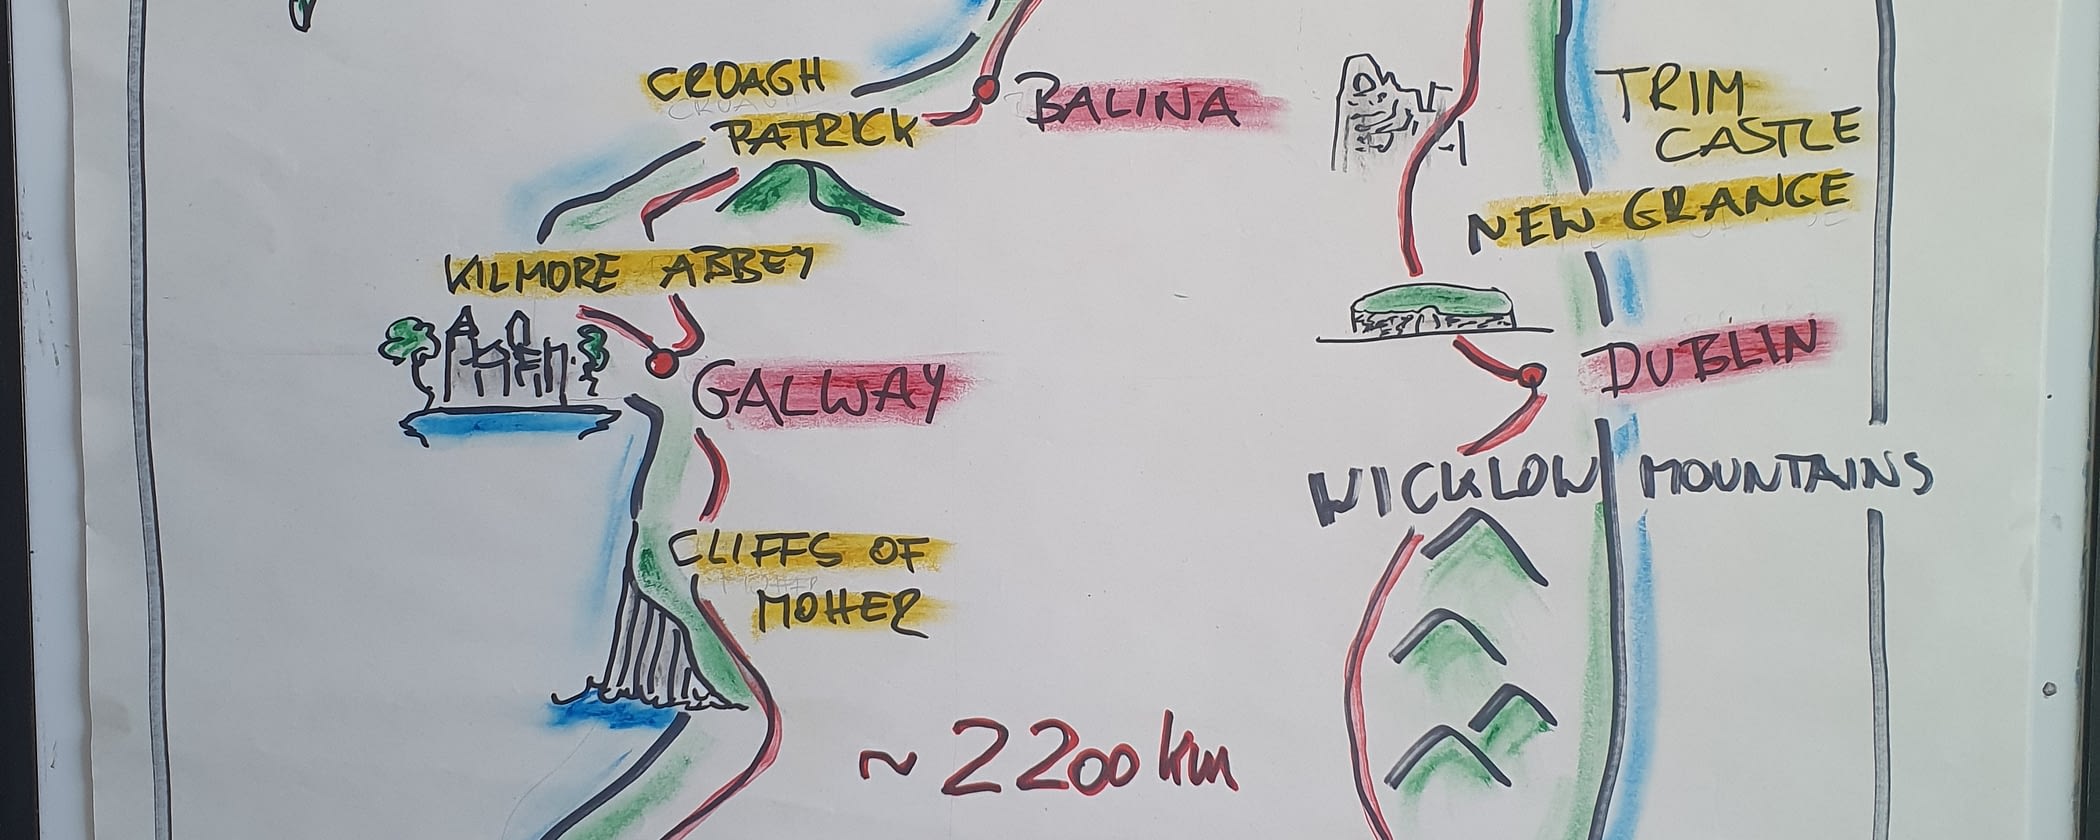 CROAGH
PATRICK
BALINA
KILMORE ABBEY
GALWAY
CLIFFS OF
MOHER
~ 2200 km
TRIM
CASTLE
NEW GRANGE
DUBLIN
WICKLOW MOUNTAINS